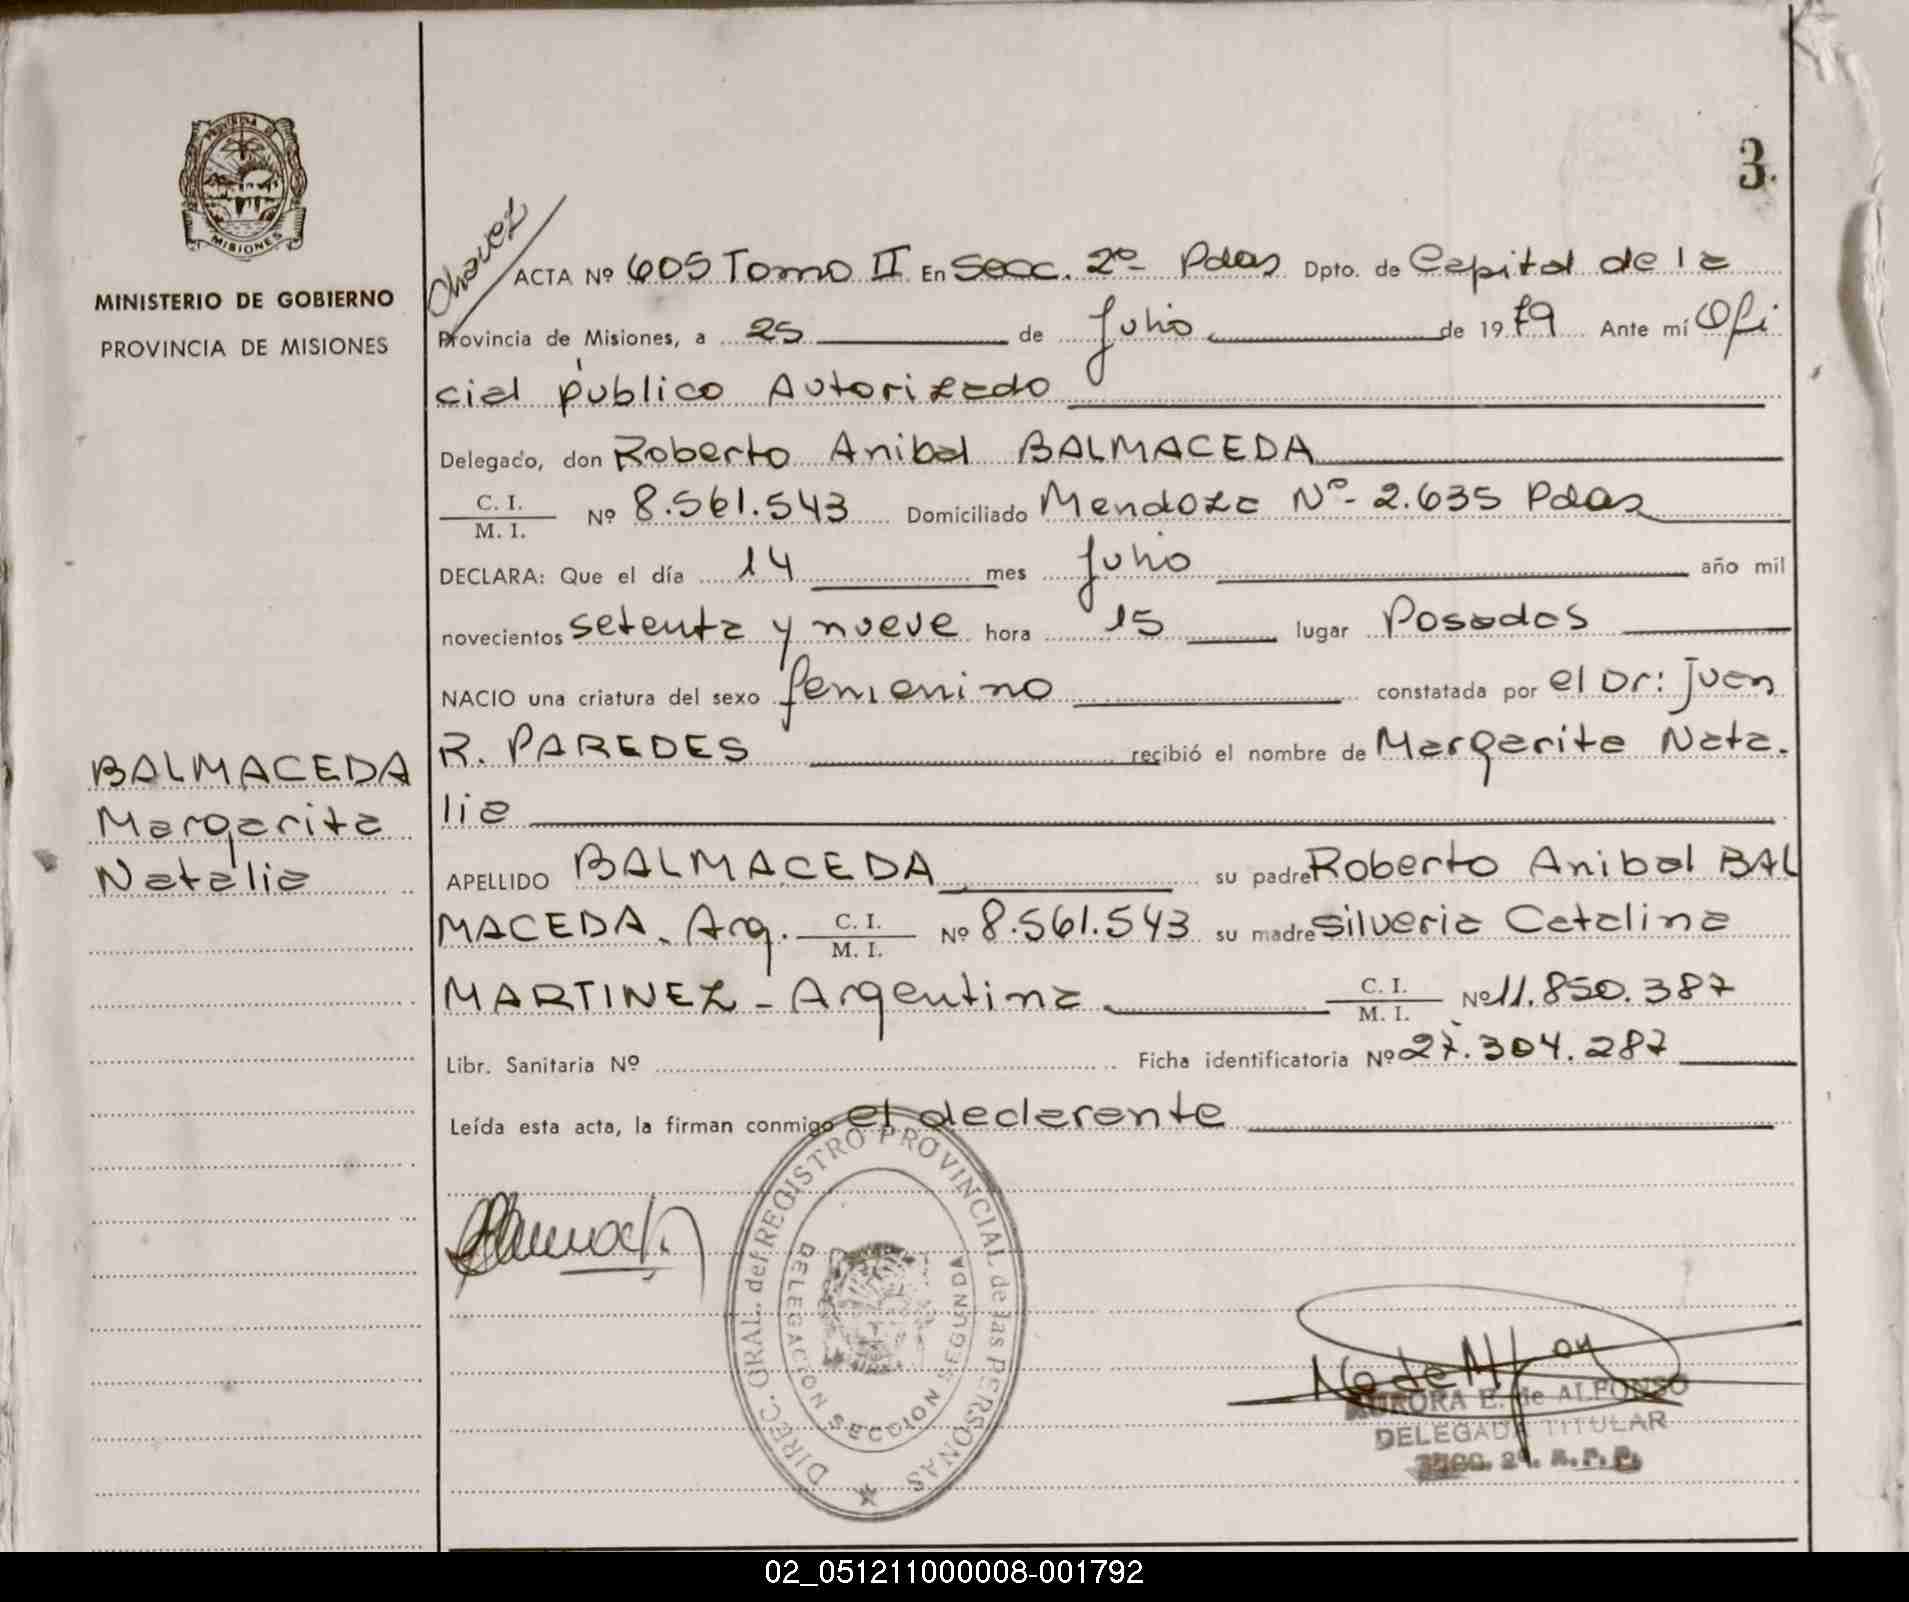 PROVINCIA DE
MISIONES
MINISTERIO DE GOBIERNO
PROVINCIA DE MISIONES
BALMACEDA
Margarita
Natalia
3.
Chavez
ACTA Nº 605 Tomo II En Secc. 2º Pdas Dpto. de Capital de la
Provincia de Misiones, a 25 de Julio de 1979 Ante mí Ofi
cial público Autorizado
Delegado, don Roberto Anibal BALMACEDA
C. I.
M. I. Nº 8.561.543 Domiciliado Mendoza Nº- 2.635 Pdas
DECLARA: Que el día 14 mes Julio año mil
novecientos setenta y nueve hora 15 lugar Posadas
NACIO una criatura del sexo femenino constatada por el Dr: Juan
R. PAREDES recibió el nombre de Margarita Nata.
lia
APELLIDO BALMACEDA su padre Roberto Anibal BAL
MACEDA. Arg. C. I. M. I. Nº 8.561.543 su madre Silveria Catalina
MARTINEZ - Argentina C. I. M. I. Nº 11.850.387
Libr. Sanitaria Nº Ficha identificatoria Nº 27.304.287
Leída esta acta, la firman conmigo el declarante
DIREC. GRAL. del REGISTRO PROVINCIAL de las PERSONAS
DELEGACION SECCION SEGUNDA
AURORA E. de ALFONSO
DELEGADA TITULAR
SECC. 2ª. R. P. P.
02_051211000008-001792